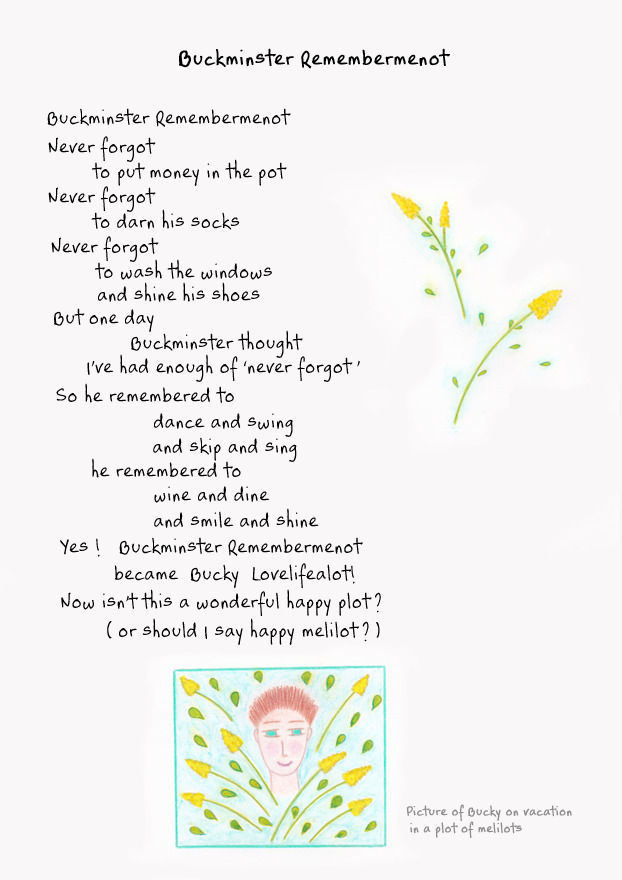 Buckminster Remembermenot
Buckminster Remembermenot
Never forgot
to put money in the pot
Never forgot
to darn his socks
Never forgot
to wash the windows
and shine his shoes
But one day
Buckminster thought
I've had enough of 'never forgot'
So he remembered to
dance and swing
and skip and sing
he remembered to
wine and dine
and smile and shine
Yes! Buckminster Remembermenot
became Bucky Lovelifealot!
Now isn't this a wonderful happy plot?
(or should I say happy melilot?)
Picture of Bucky on vacation
in a plot of melilots